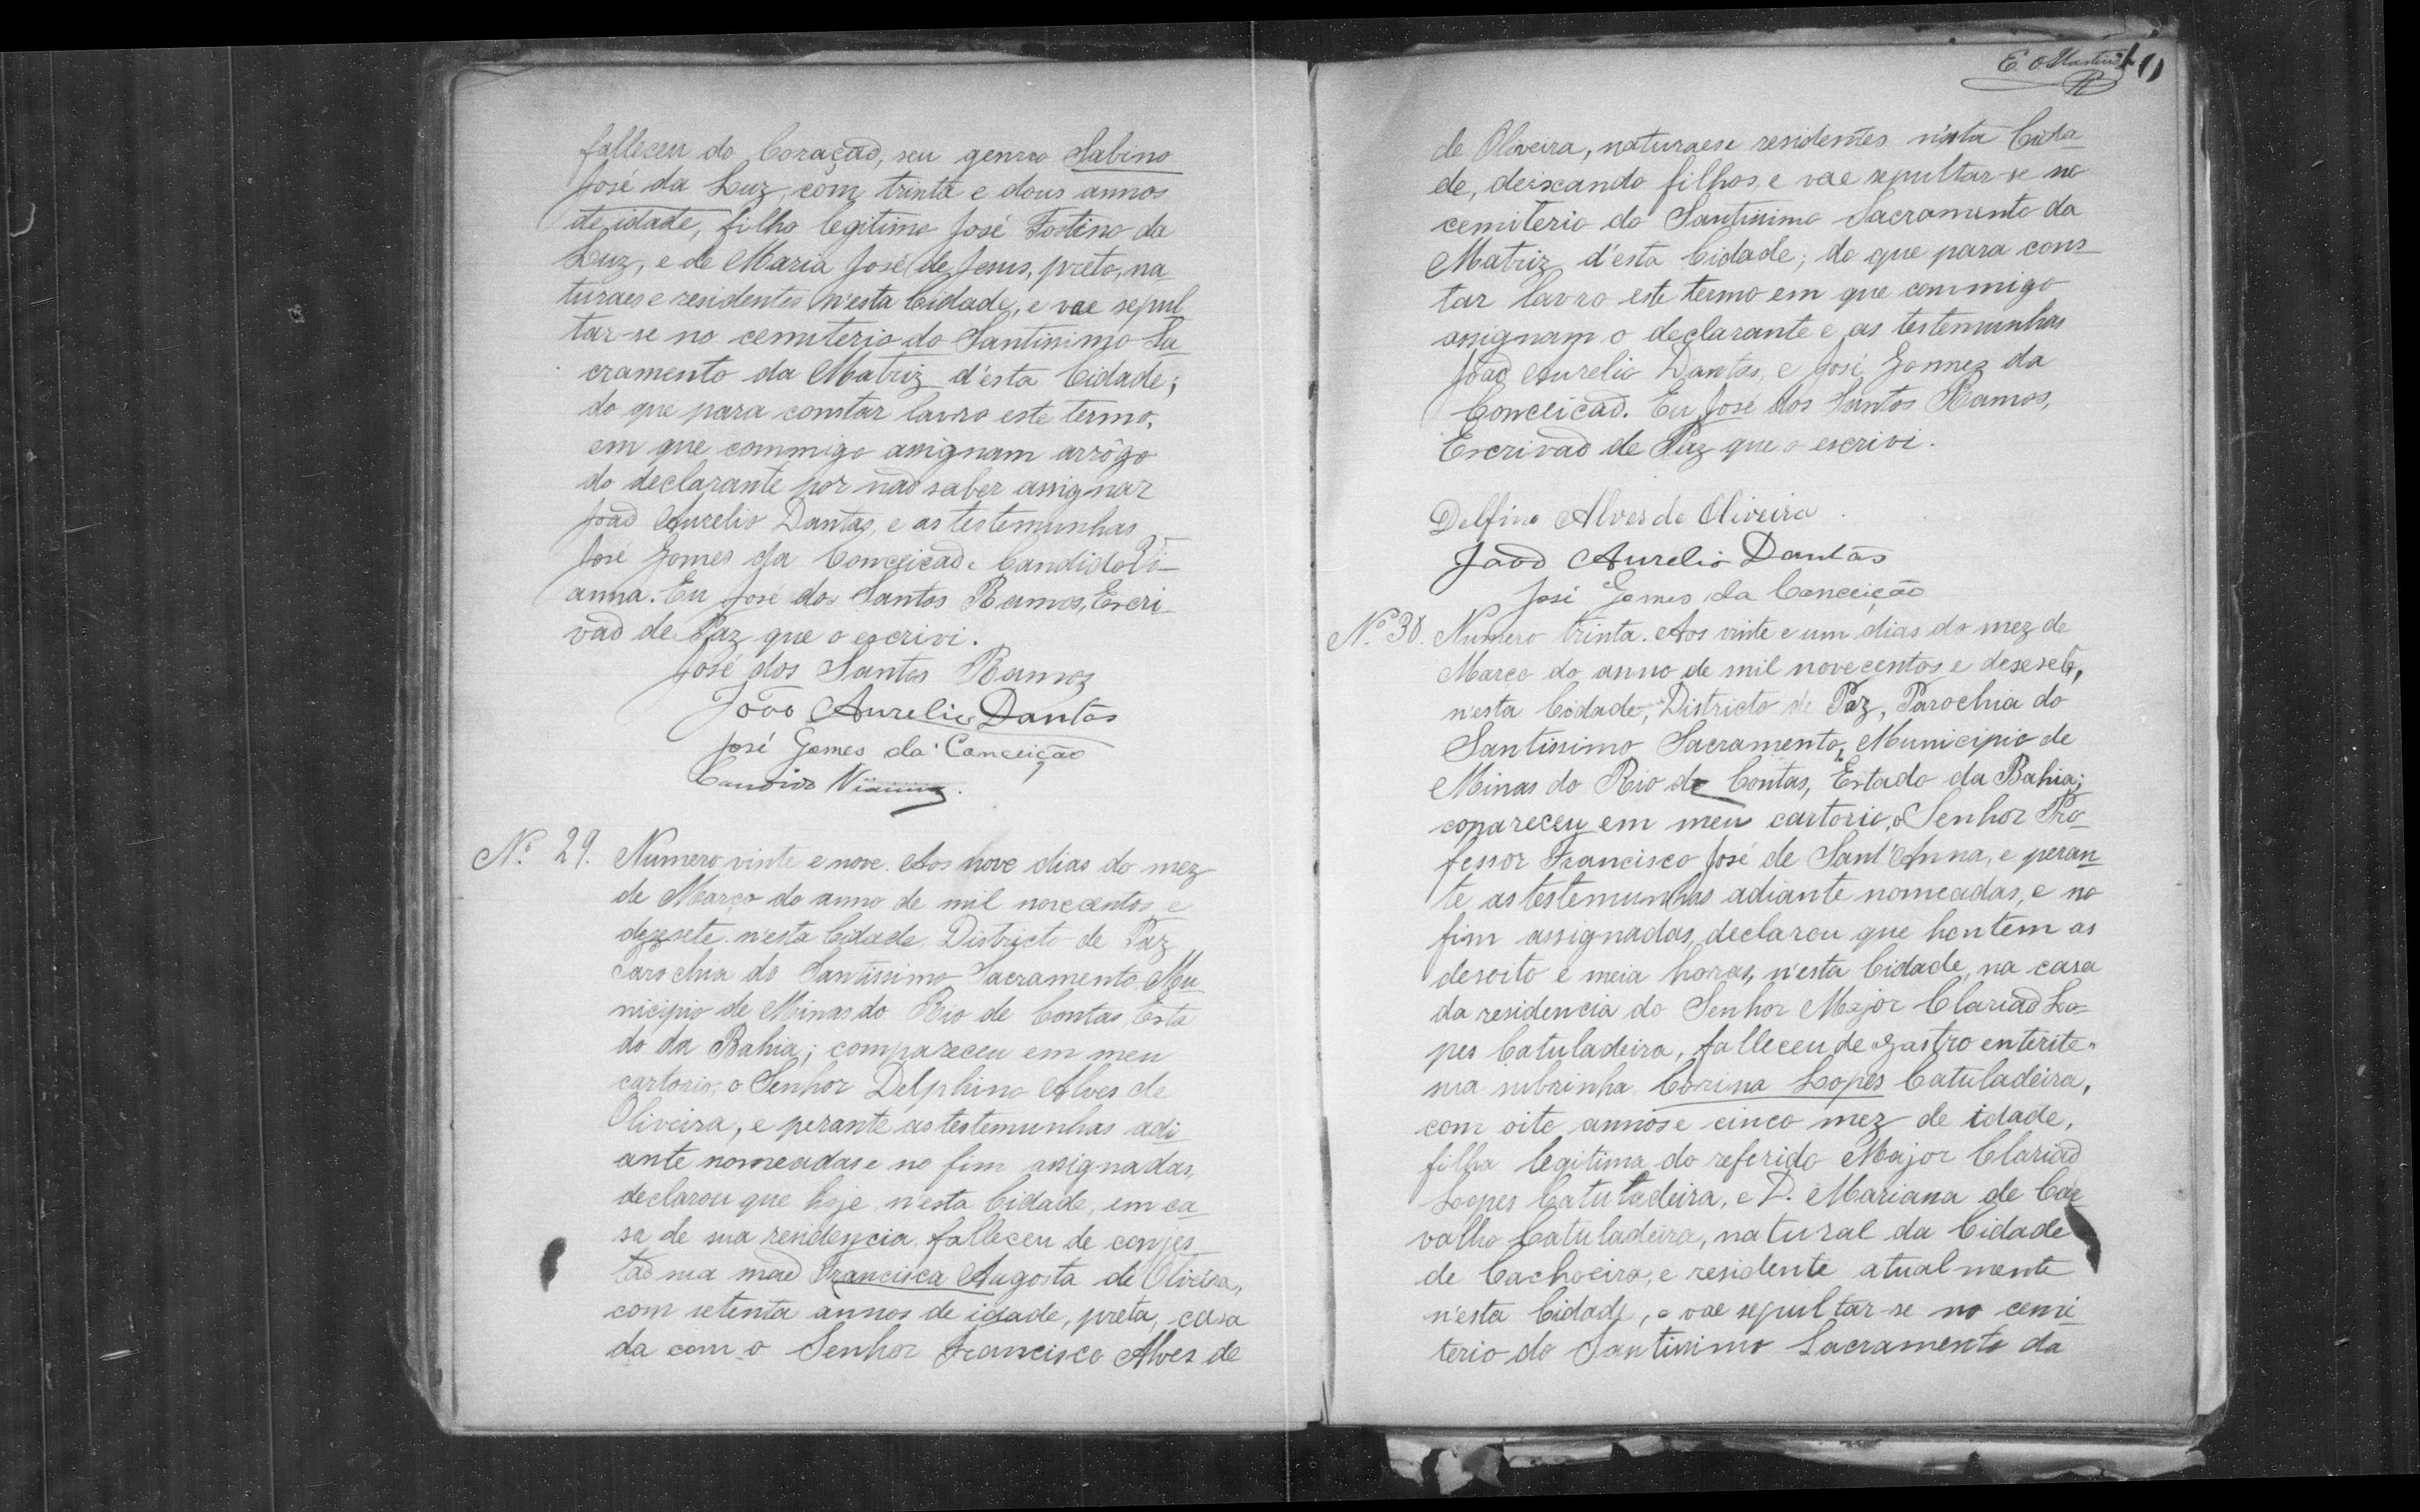 falleceu do Coração, seu genrro Sabino
José da Luz, com trinta e dous annos
de idade, filho legitimo José Fostino da
Luz, e de Maria José de Jesus, preto, na_
turaes e residentes n'esta Cidade, e vae sepul_
tar-se no cemiterio do Santissimo Sa_
cramento da Matriz d'esta Cidade;
do que para constar lavro este termo,
em que commigo assignam arrôgo
do declarante por não saber assignar
João Aurelio Dantas, e as testemunhas
José Gomes da Conceicão e Candido Vi_
anna. Eu José dos Santos Ramos, Escri_
vão de Paz que o escrivi.
José dos Santos Ramos
João Aurelio Dantas
José Gomes da Conceição
Candido Vianna.
Nº 29. Numero vinte e nove. Aos nove dias do mez
de Março do anno de mil novecentos e
dezesete n'esta Cidade, Districto de Paz
Parochia do Santissimo Sacramento, Mu_
nicipio de Minas do Rio de Contas, Esta
do da Bahia; compareceu em meu
cartorio, o Senhor Delphino Alves de
Oliveira, e perante as testemunhas adi_
ante nomeadas e no fim assignadas,
declarou que hoje n'esta Cidade, em ca_
sa de sua residencia falleceu de conjes_
tão sua mãe Francisca Augosta de Oliveira,
com setenta annos de idade, preta, casa
da com o Senhor Francisco Alves de
E. Martins 40
de Oliveira, naturaes e residentes n'esta Cida_
de, deixando filhos, e vae sepultar-se no
cemiterio do Santissimo Sacramento da
Matriz d'esta Cidade; do que para cons_
tar lavro este termo em que commigo
assignam o declarante e as testemunhas
João Aurelio Dantas, e José Gomes da
Conceicão. Eu José dos Santos Ramos,
Escrivão de Paz que o escrivi.
Delfino Alves de Oliveira.
João Aurelio Dantas
José Gomes da Conceição
Nº 30. Numero trinta. Aos vinte e um dias do mez de
Março do anno de mil novecentos e desesete,
n'esta Cidade, Districto de Paz, Parochia do
Santissimo Sacramento, Municipio de
Minas do Rio de Contas, Estado da Bahia;
copareceu em meu cartorio, o Senhor Pro_
fessor Francisco José de Sant'Anna, e peran_
te as testemunhas adiante nomeadas, e no
fim assignadas, declarou que hontem as
desoito e meia horas, n'esta Cidade, na casa
da residencia do Senhor Major Clarião Lo_
pes Catuladeira, falleceu de gastro enterite
sua subrinha Corina Lopes Catuladeira,
com oito annos e cinco mez de idade,
filha legitima do referido Major Clarião
Lopes Catuladeira, e D. Mariana de Car_
valho Catuladeira, natural da Cidade
de Cachoeira, e residente atualmente
n'esta Cidade, e vae sepultar-se no cemi_
terio do Santissimo Sacramento da